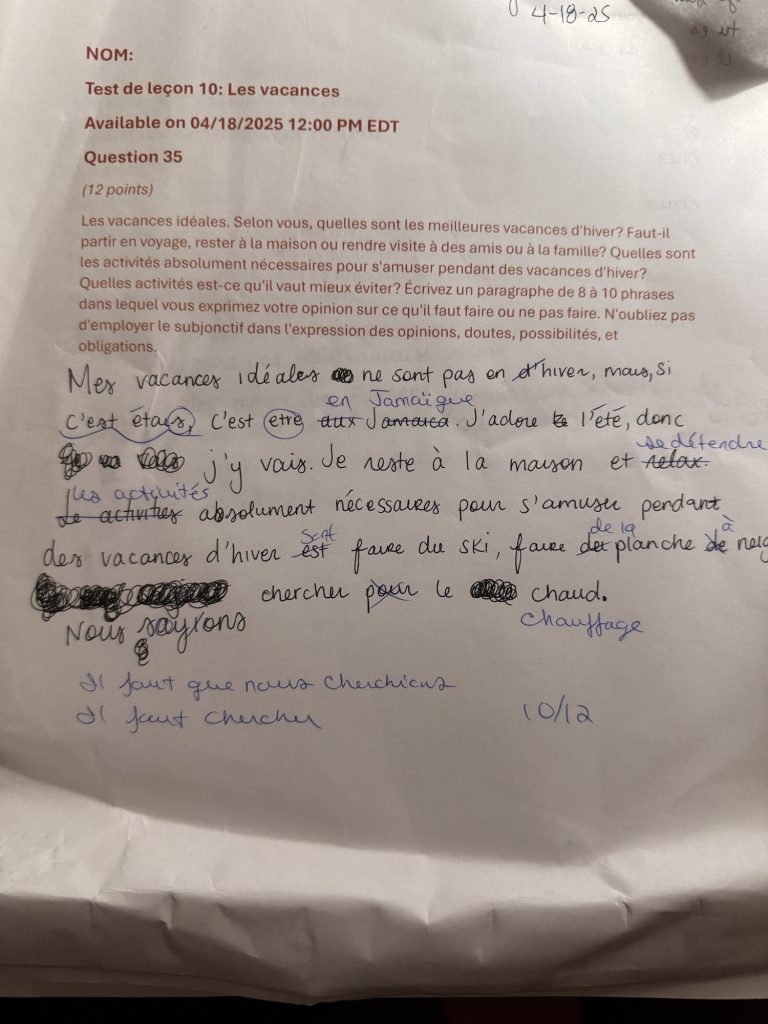 4-18-25
NOM:
Test de leçon 10: Les vacances
Available on 04/18/2025 12:00 PM EDT
Question 35
(12 points)
Les vacances idéales. Selon vous, quelles sont les meilleures vacances d'hiver? Faut-il
partir en voyage, rester à la maison ou rendre visite à des amis ou à la famille? Quelles sont
les activités absolument nécessaires pour s'amuser pendant des vacances d'hiver?
Quelles activités est-ce qu'il vaut mieux éviter? Écrivez un paragraphe de 8 à 10 phrases
dans lequel vous exprimez votre opinion sur ce qu'il faut faire ou ne pas faire. N'oubliez pas
d'employer le subjonctif dans l'expression des opinions, doutes, possibilités, et
obligations.
Mes vacances idéales ne sont pas en d'hiver, mais, si
en Jamaïque
c'est étais, c'est etre aux Jamaica. J'adore l'été, donc
se détendre
j'y vais. Je reste à la maison et relax.
les activités
Le activities absolument nécessaires pour s'amuser pendant
sont de la à
des vacances d'hiver est faire du ski, faire des planche de neig
chercher pour le chaud.
chauffage
Nous sayrons
Il faut que nous cherchions
Il faut chercher 10/12